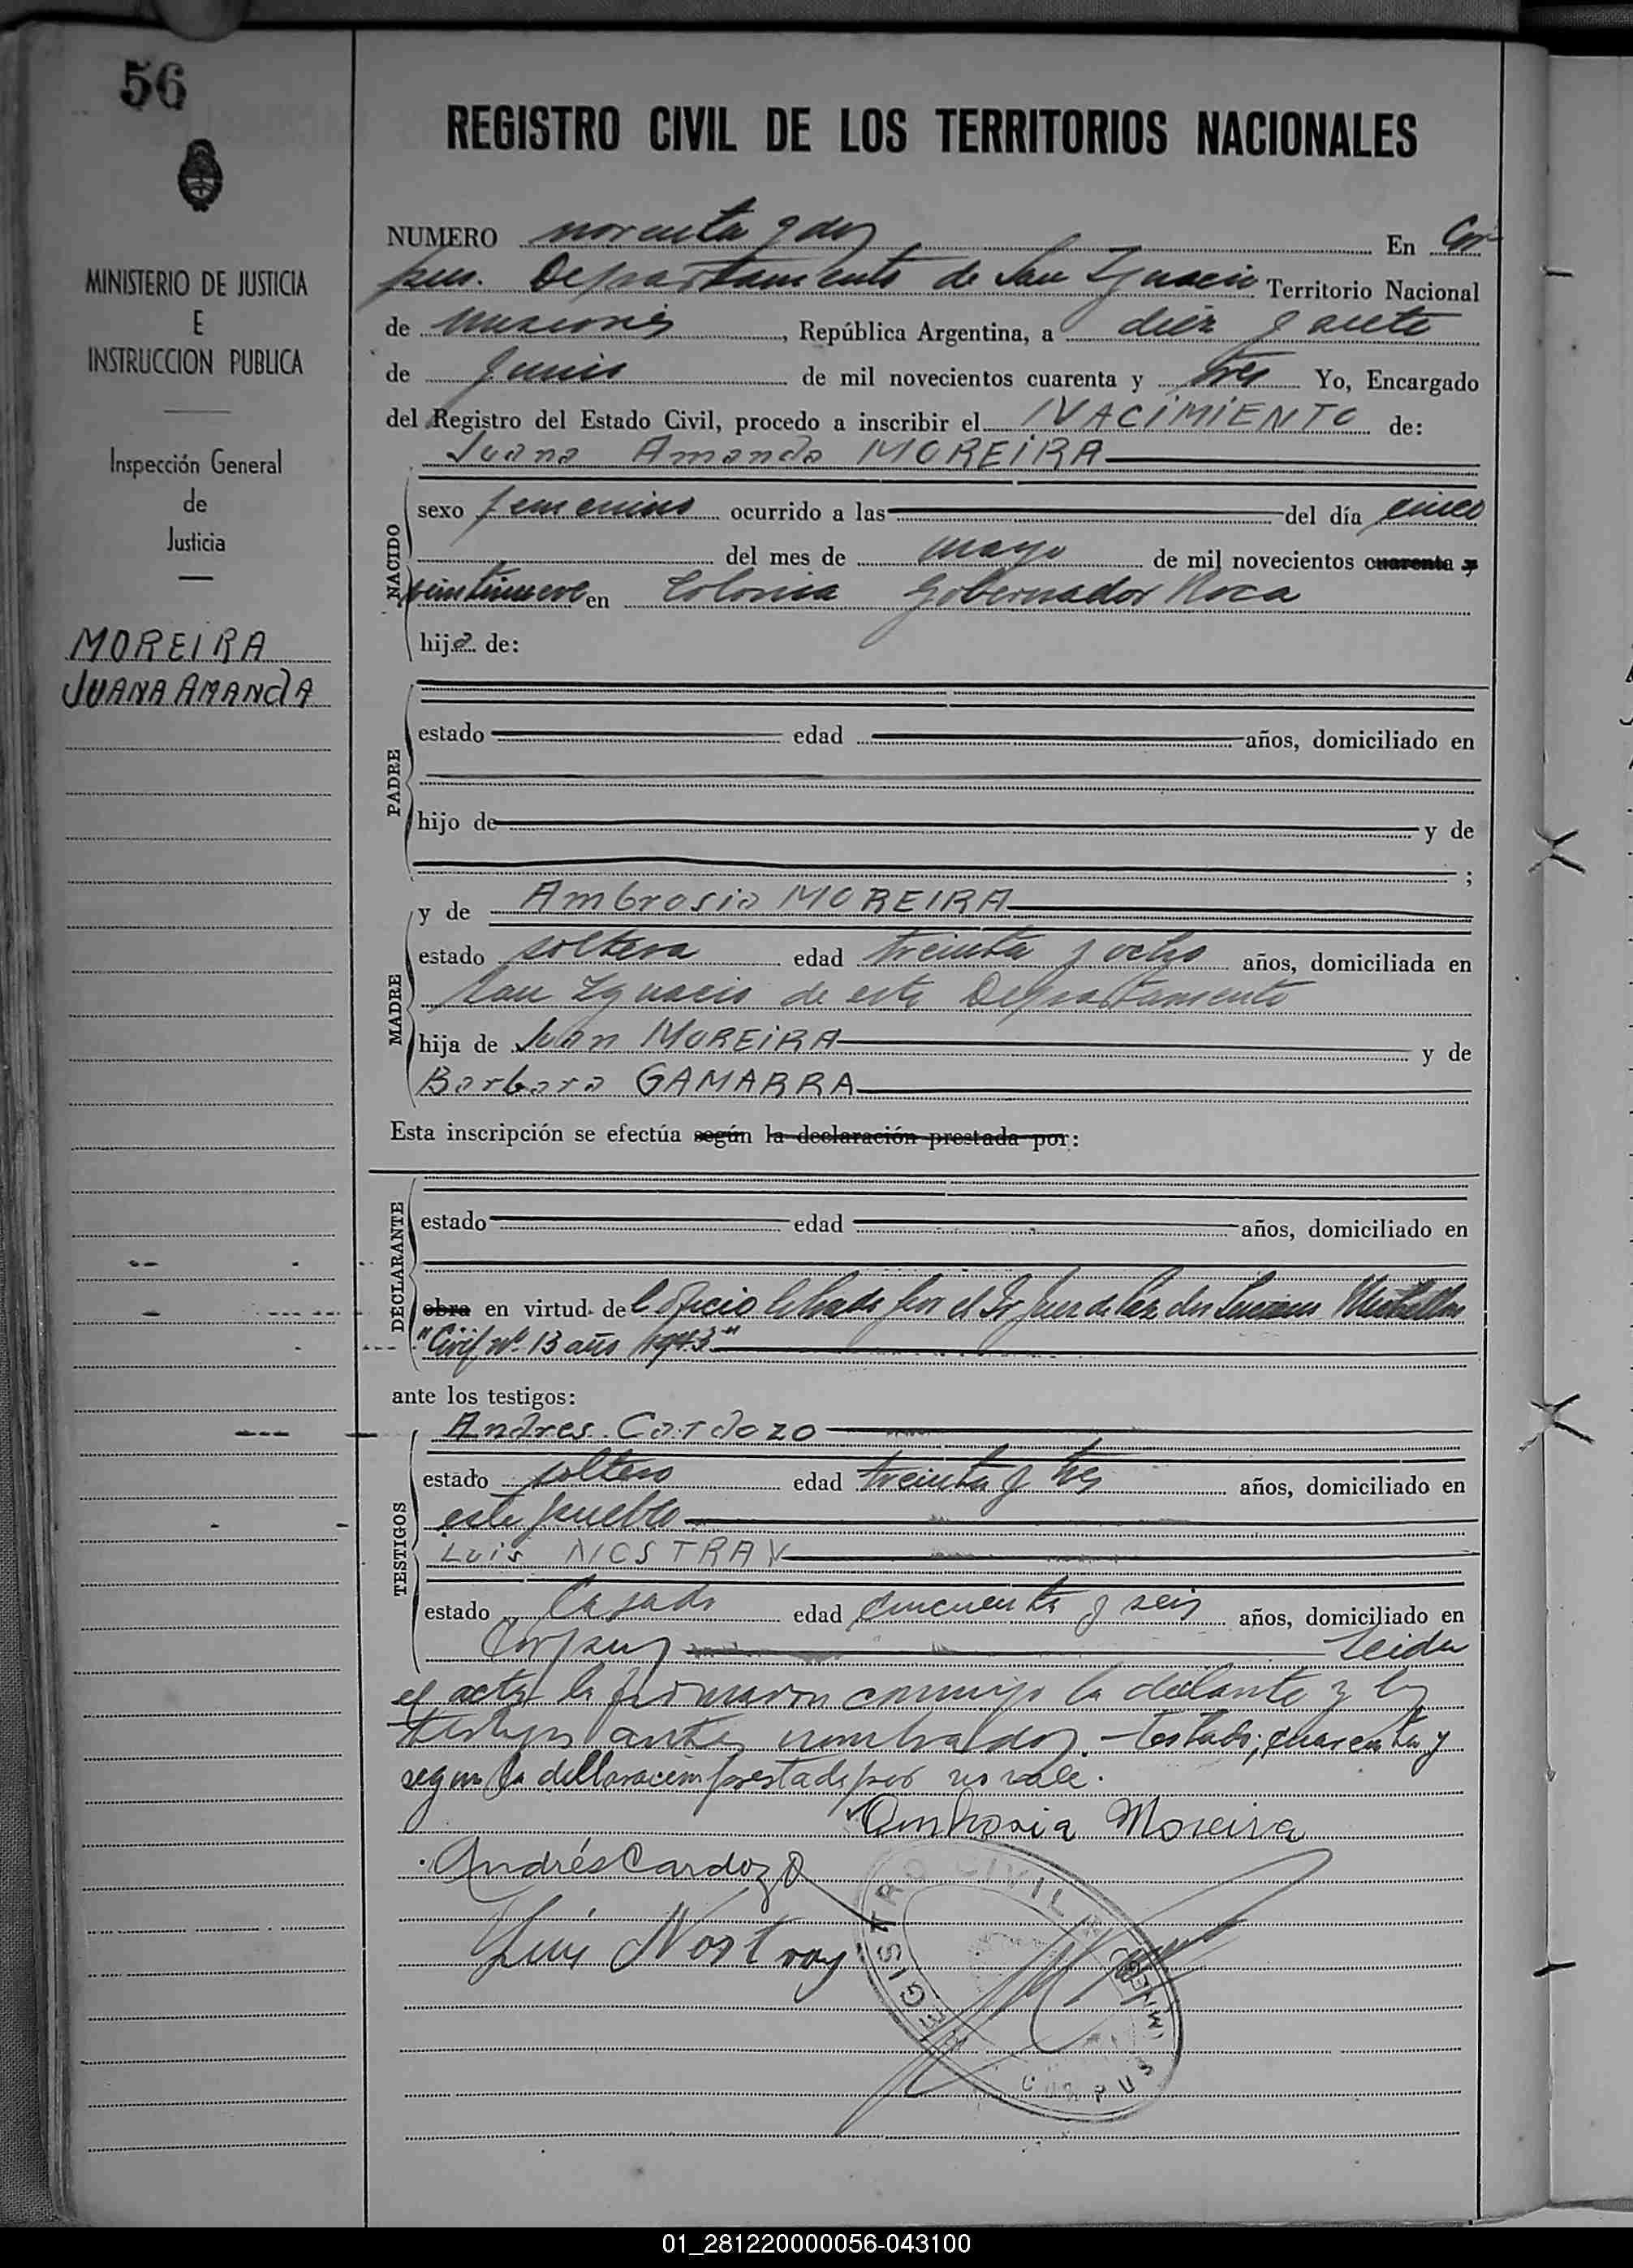 56
MINISTERIO DE JUSTICIA
E
INSTRUCCION PUBLICA
Inspección General
de
Justicia
MOREIRA
JUANA AMANDA
REGISTRO CIVIL DE LOS TERRITORIOS NACIONALES
NUMERO noventa y dos En Cor-
pus. Departamento de San Ignacio Territorio Nacional
de Misiones, República Argentina, a diez y siete
de Junio de mil novecientos cuarenta y tres Yo, Encargado
del Registro del Estado Civil, procedo a inscribir el NACIMIENTO de:
Juana Amanda MOREIRA
NACIDO
sexo femenino ocurrido a las del día cinco
del mes de mayo de mil novecientos cuarenta y
veintinueve en Colonia Gobernador Roca
hija de:
PADRE
estado edad años, domiciliado en
hijo de y de
;
MADRE
y de Ambrosia MOREIRA
estado soltera edad treinta y ocho años, domiciliada en
San Ignacio de este Departamento
hija de Juan MOREIRA y de
Barbara GAMARRA
Esta inscripción se efectúa según la declaración prestada por:
DECLARANTE
estado edad años, domiciliado en
obra en virtud de l oficio librado por el Sr Juez de Paz don Luciano
"Civil Nº 13 año 1943"
ante los testigos:
TESTIGOS
Andres Cardozo
estado soltero edad treinta y tres años, domiciliado en
este pueblo
Luis NOSTRAY
estado Casado edad cincuenta y seis años, domiciliado en
Corpus Leida
el acta la firmaron conmigo la y los
testigos antes nombrados. - testado; cuarenta y
segun la declaracion prestada por no vale.
Ambrosia Moreira
Andrés Cardozo
Luis Nostray
REGISTRO CIVIL
CORPUS
01_281220000056-043100